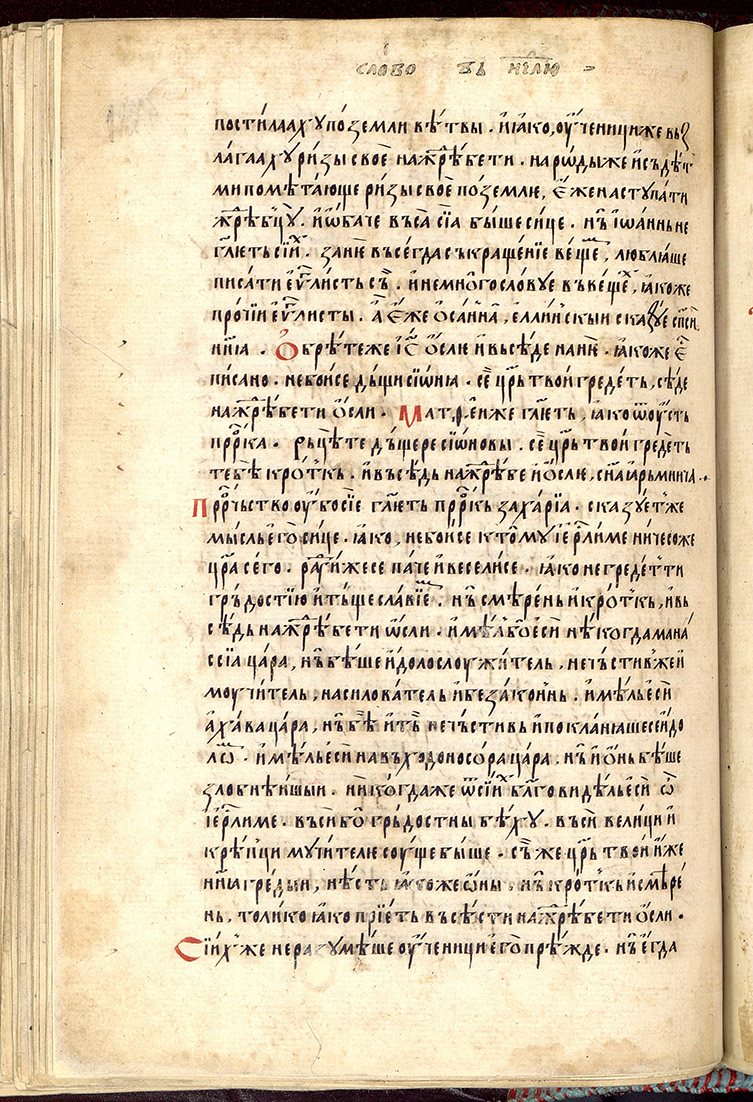 сло́во въ не҃лю
пости́лаахꙋ по́земли вѣ́твы . и҆ ꙗ҆ко, оу҆́ченици же въз
лагаахꙋ ри́зы своѐ на жрⷣѣ́бети . нарѡ́ды же и҆ съ дѣтⸯ
ми помѣта́юще ри́зы своѐ по́землю, є҆́же настꙋпа́ти
жрⷣѣ́бцꙋ . и҆ ѡ҆баче въса̀ сїа̀ бы́ше си́це . нъ̀ і҆ѡа́ннь не
гл҃ѥть сїиⷯ . занѥ̀ въсегда съкраще́нїе ве́щеⷨ, люблꙗ́ше
писа́ти е҆ѵⷢ҇листь съ̀ . и҆ немно́гословꙋе въ ке́щеⷯ, ꙗ҆коже
про́чїи е҆ѵⷢ҇листы . а҆̀ є҆́же ѻ҆са́нна̀, е҆ллин́скыи сказꙋ́е сп҃сѝ
нн҃ꙗ . Ѻ҆брѣ́те же і҆с҃ ѻ҆́слю и҆ въсѣ́де на нѥ̀ . ꙗ҆коже є҆̀
писано . не бо́исе дъ́щи сїѡ́нꙗ . сѐ цр҃ь твои́ греде́ть, сѣ́де
на жрⷣѣ́бети ѻ҆́сли . Матѳе́и же гл҃ѥть, ꙗ҆ко ѿ оу҆́сть
прⷪ҇рка . рьцѣ́те дъ́щере сїѡ́новы . сѐ цр҃ь твои́ греде́ть
тебѣ̀ кро́тⸯкь . и҆ въсѣ́дь на жрⷣѣ́бе и҆ ѻ҆́слю, сн҃а ꙗ҆рьмнича .
Прⷪ҇рчьство оу҆́бо сїѐ гл҃ѥть прⷪ҇ркь заха́рїа . сказꙋ́етⸯже
мы́сль е҆го̀ си́це . ꙗ҆ко, не бо́исе кто́мꙋ і҆ерⷭ҇лиме ничесо́же
цр҃а сего . раⷣꙋ́и же се па́че и҆ весели́се . ꙗ҆ко не греде́тⸯ ти
гръ́достїю и҆ тъ́щесла́вїеⷨ . нъ̀ смѣре́нь и҆ кро́тⸯкь, и҆ въ
сѣ́дь на жрⷣѣ́бети ѻ҆́сли . и҆мѣ́ль бо̀ е҆сѝ нѣ́когда мана
ссїа ца́ра, нъ̀ бѣ́ше и҆́долослоу́житель, нечъ́стивⸯже и҆
моу́читель, насило́ватель и҆ беза́конⸯнь . и҆мѣ́ль е҆сѝ
а҆ха́ва ца́ра, нъ̀ бѣ̀ и҆ тъ̀ нечъ́стивь и҆ покла́нꙗше се и҆́до
лѡⷨ . и҆мѣ́ль е҆сѝ навъходоносо́ра ца́ра, нъ̀ и҆ ѻ҆́нь бѣ́ше
злобнѣ́ишыи . ни́когда же ѿ сїиⷯ бл҃го видѣ́ль е҆сѝ ѽ
і҆ерⷭ҇лиме . въсѝ бо̀ гръ́достны бѣ́хꙋ . въсѝ вели́ци и҆
крѣ́пⸯци мꙋ́чителю соу́ще бы́ше . сь́ же цр҃ь твои́ и҆́же
нн҃ꙗ гре́дыи, нѣ́сть ꙗ҆коже ѻ҆́ны, нъ̀ кро́тⸯкь и҆ смѣре́
нь, толи́ко ꙗ҆ко прїе́ть въсѣ́сти на жрⷣѣ́бети ѻ҆́сли .
Сїи́хⸯ же не разꙋмѣ́ше оу҆́ченици е҆го̀ прѣ́жде . нъ̀ е҆гда